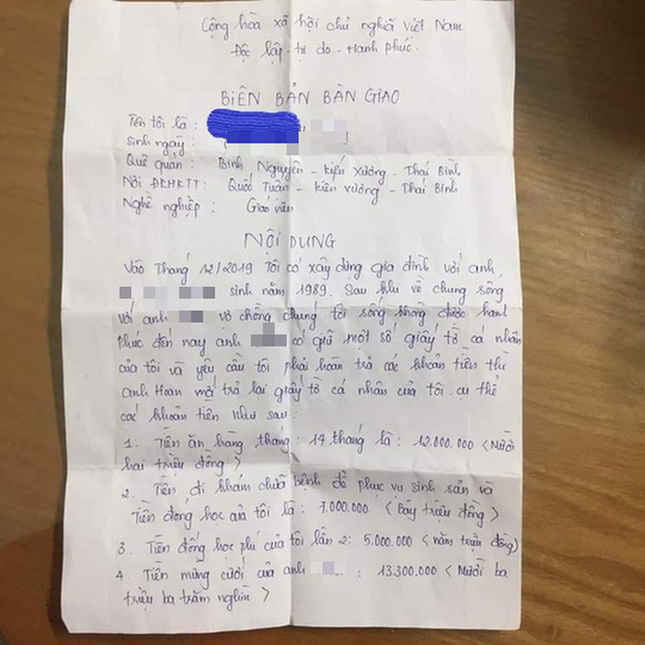 Cộng hòa xã hội chủ nghĩa Việt Nam
Độc lập - tự do - Hạnh phúc.
BIÊN BẢN BÀN GIAO
Tên tôi là :
Sinh ngày :
Quê quán : Bình Nguyên - Kiến Xương - Thái Bình
Nơi ĐKHKTT : Quốc Tuấn - Kiến Xương - Thái Bình
Nghề nghiệp : Giáo viên
NỘI DUNG
Vào Tháng 12/2019 Tôi có xây dựng gia đình với anh
sinh năm 1989. Sau khi về chung sống
với anh vợ chồng chúng tôi sống không được hạnh
phúc đến nay anh có giữ một số giấy tờ cá nhân
của tôi và yêu cầu tôi phải hoàn trả các khoản tiền thì
anh Hoan mới trả lại giấy tờ cá nhân của tôi cụ thể
các khoản tiền như sau :
1 : Tiền ăn hàng tháng : 14 tháng là : 12.000.000 < Mười
hai triệu đồng >
2. Tiền đi khám chữa bệnh để phục vụ sinh sản và
Tiền đóng học của tôi là : 7.000.000 < Bảy triệu đồng >
3. Tiền đóng học phí của tôi lần 2 : 5.000.000 < năm triệu đồng )
4. Tiền mừng cưới của anh : 13.300.000 < Mười ba
triệu ba trăm nghìn >